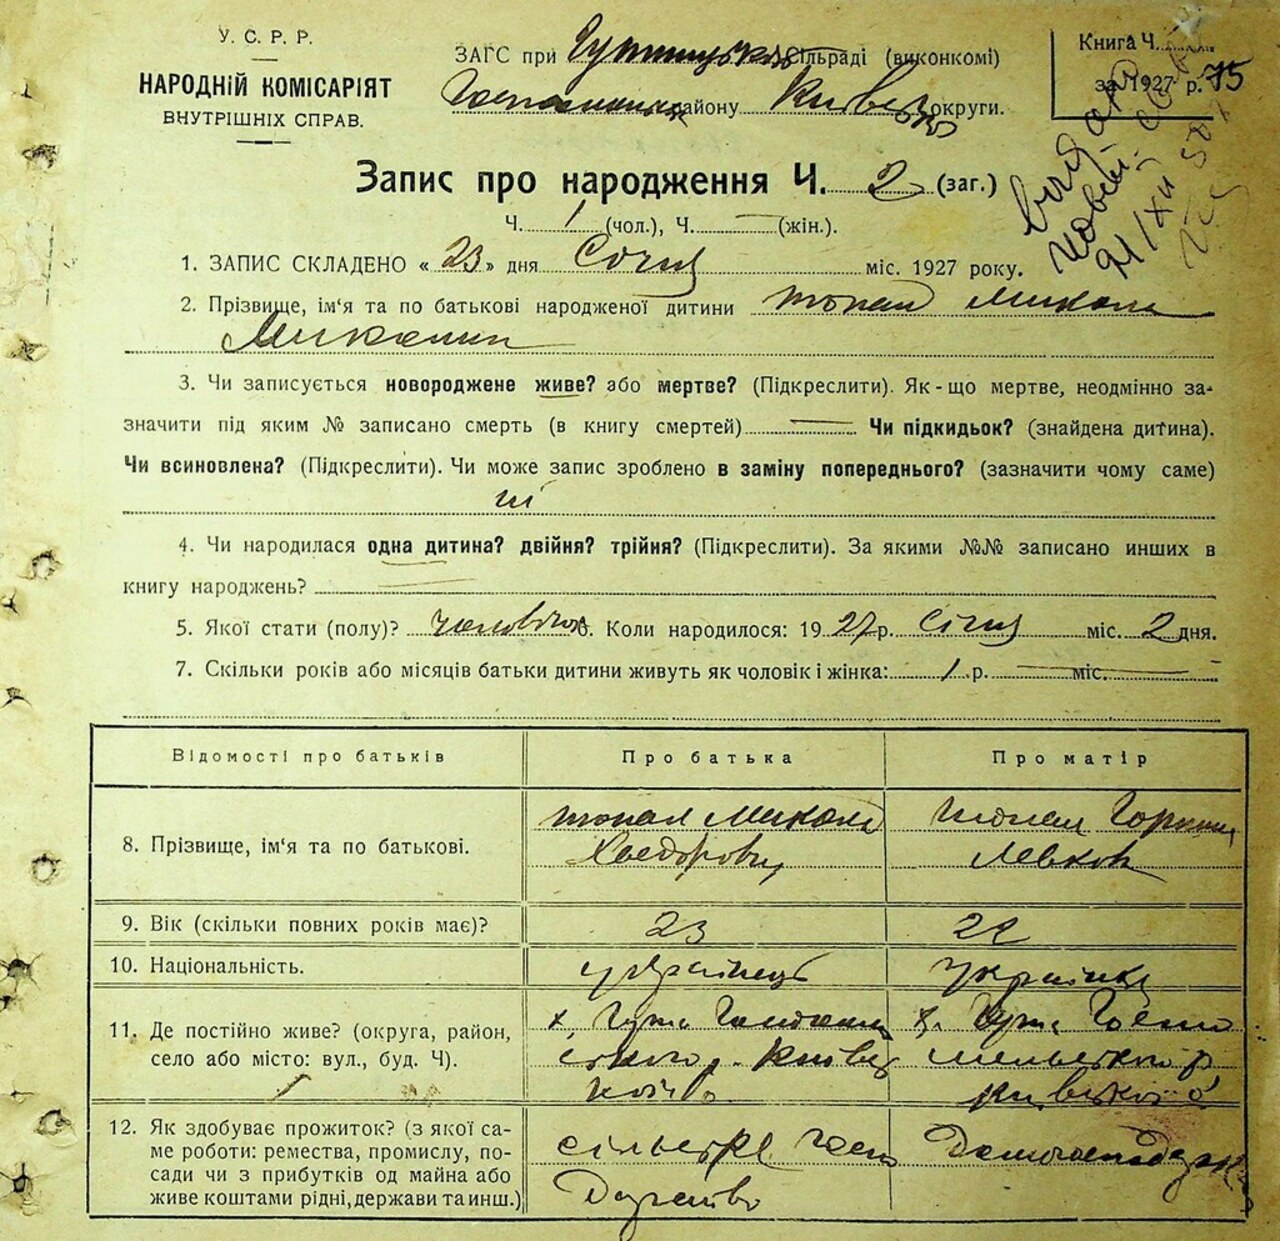 У. С. Р. Р.
НАРОДНІЙ КОМІСАРІЯТ
ВНУТРІШНІХ СПРАВ.
ЗАГС при сільраді (виконкомі)
району округи.
Книга Ч.
за 1927 р. 75
Запис про народження Ч. 2 (заг.)
Ч. 1 (чол.), Ч. — (жін.).
1. ЗАПИС СКЛАДЕНО « 23 » дня Січня міс. 1927 року.
2. Прізвище, ім'я та по батькові народженої дитини Топал Микола
Миколин
3. Чи записується новороджене живе? або мертве? (Підкреслити). Як-що мертве, неодмінно за-
значити під яким № записано смерть (в книгу смертей) — Чи підкидьок? (знайдена дитина).
Чи всиновлена? (Підкреслити). Чи може запис зроблено в заміну попереднього? (зазначити чому саме)
ні
4. Чи народилася одна дитина? двійня? трійня? (Підкреслити). За якими №№ записано инших в
книгу народжень? —
5. Якої стати (полу)? 6. Коли народилося: 19 27 р. Січня міс. 2 дня.
7. Скільки років або місяців батьки дитини живуть як чоловік і жінка: 1 р. — міс. —
Відомості про батьків Про батька Про матір
8. Прізвище, ім'я та по батькові. Топал Микола Хведорович Топал Левков
9. Вік (скільки повних років має)? 23
10. Національність. українець українка
11. Де постійно живе? (округа, район, х. Гута х. Гута
село або місто: вул., буд. Ч).
12. Як здобуває прожиток? (з якої са-
ме роботи: ремества, промислу, по-
сади чи з прибутків од майна або
живе коштами рідні, держави та инш.)